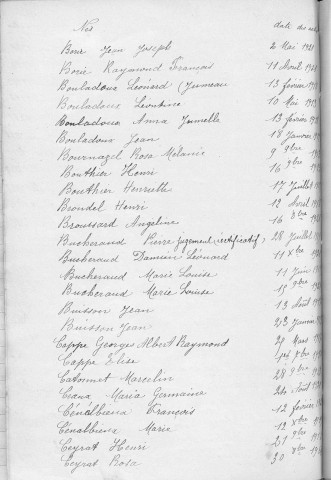 Nés date des actes
Borie Jean Joseph 2 Mai
Borie Raymond François 11 Avril
Bouladoux Léonard (Jumeau 13 février
Bouladoux Léontine 10 Mai
Bouladoux Anna Jumelle 13 février
Bouladoux Jean 18 Janvier
Bournazel Rosa Mélanie 9 9bre
Bouthier Henri 16 9bre
Bouthier Henriette 17 Juillet
Brondel Henri 12 Avril
Broussard Angeline 16 8bre
Bucheraud Pierre jugement rectificatif) 28 Juillet
Bucheraud Damien Léonard 11 Xbre
Bucheraud Marie Louise 11 Juin
Bucheraud Marie Louise 15 9bre
Buisson Jean 13 Août
Buisson Jean 23 Janvier
Cappe Georges Albert Raymond 29 Mars
Cappe Elise
Catonnet Marcelin 28 9bre
Ceaux Maria Germaine 24 Août
Cénabbieux François 12 février
Cénabbieux Marie 12 Xbre
Ceyrat Henri 21 9bre
Ceyrat Rosa 30 8bre